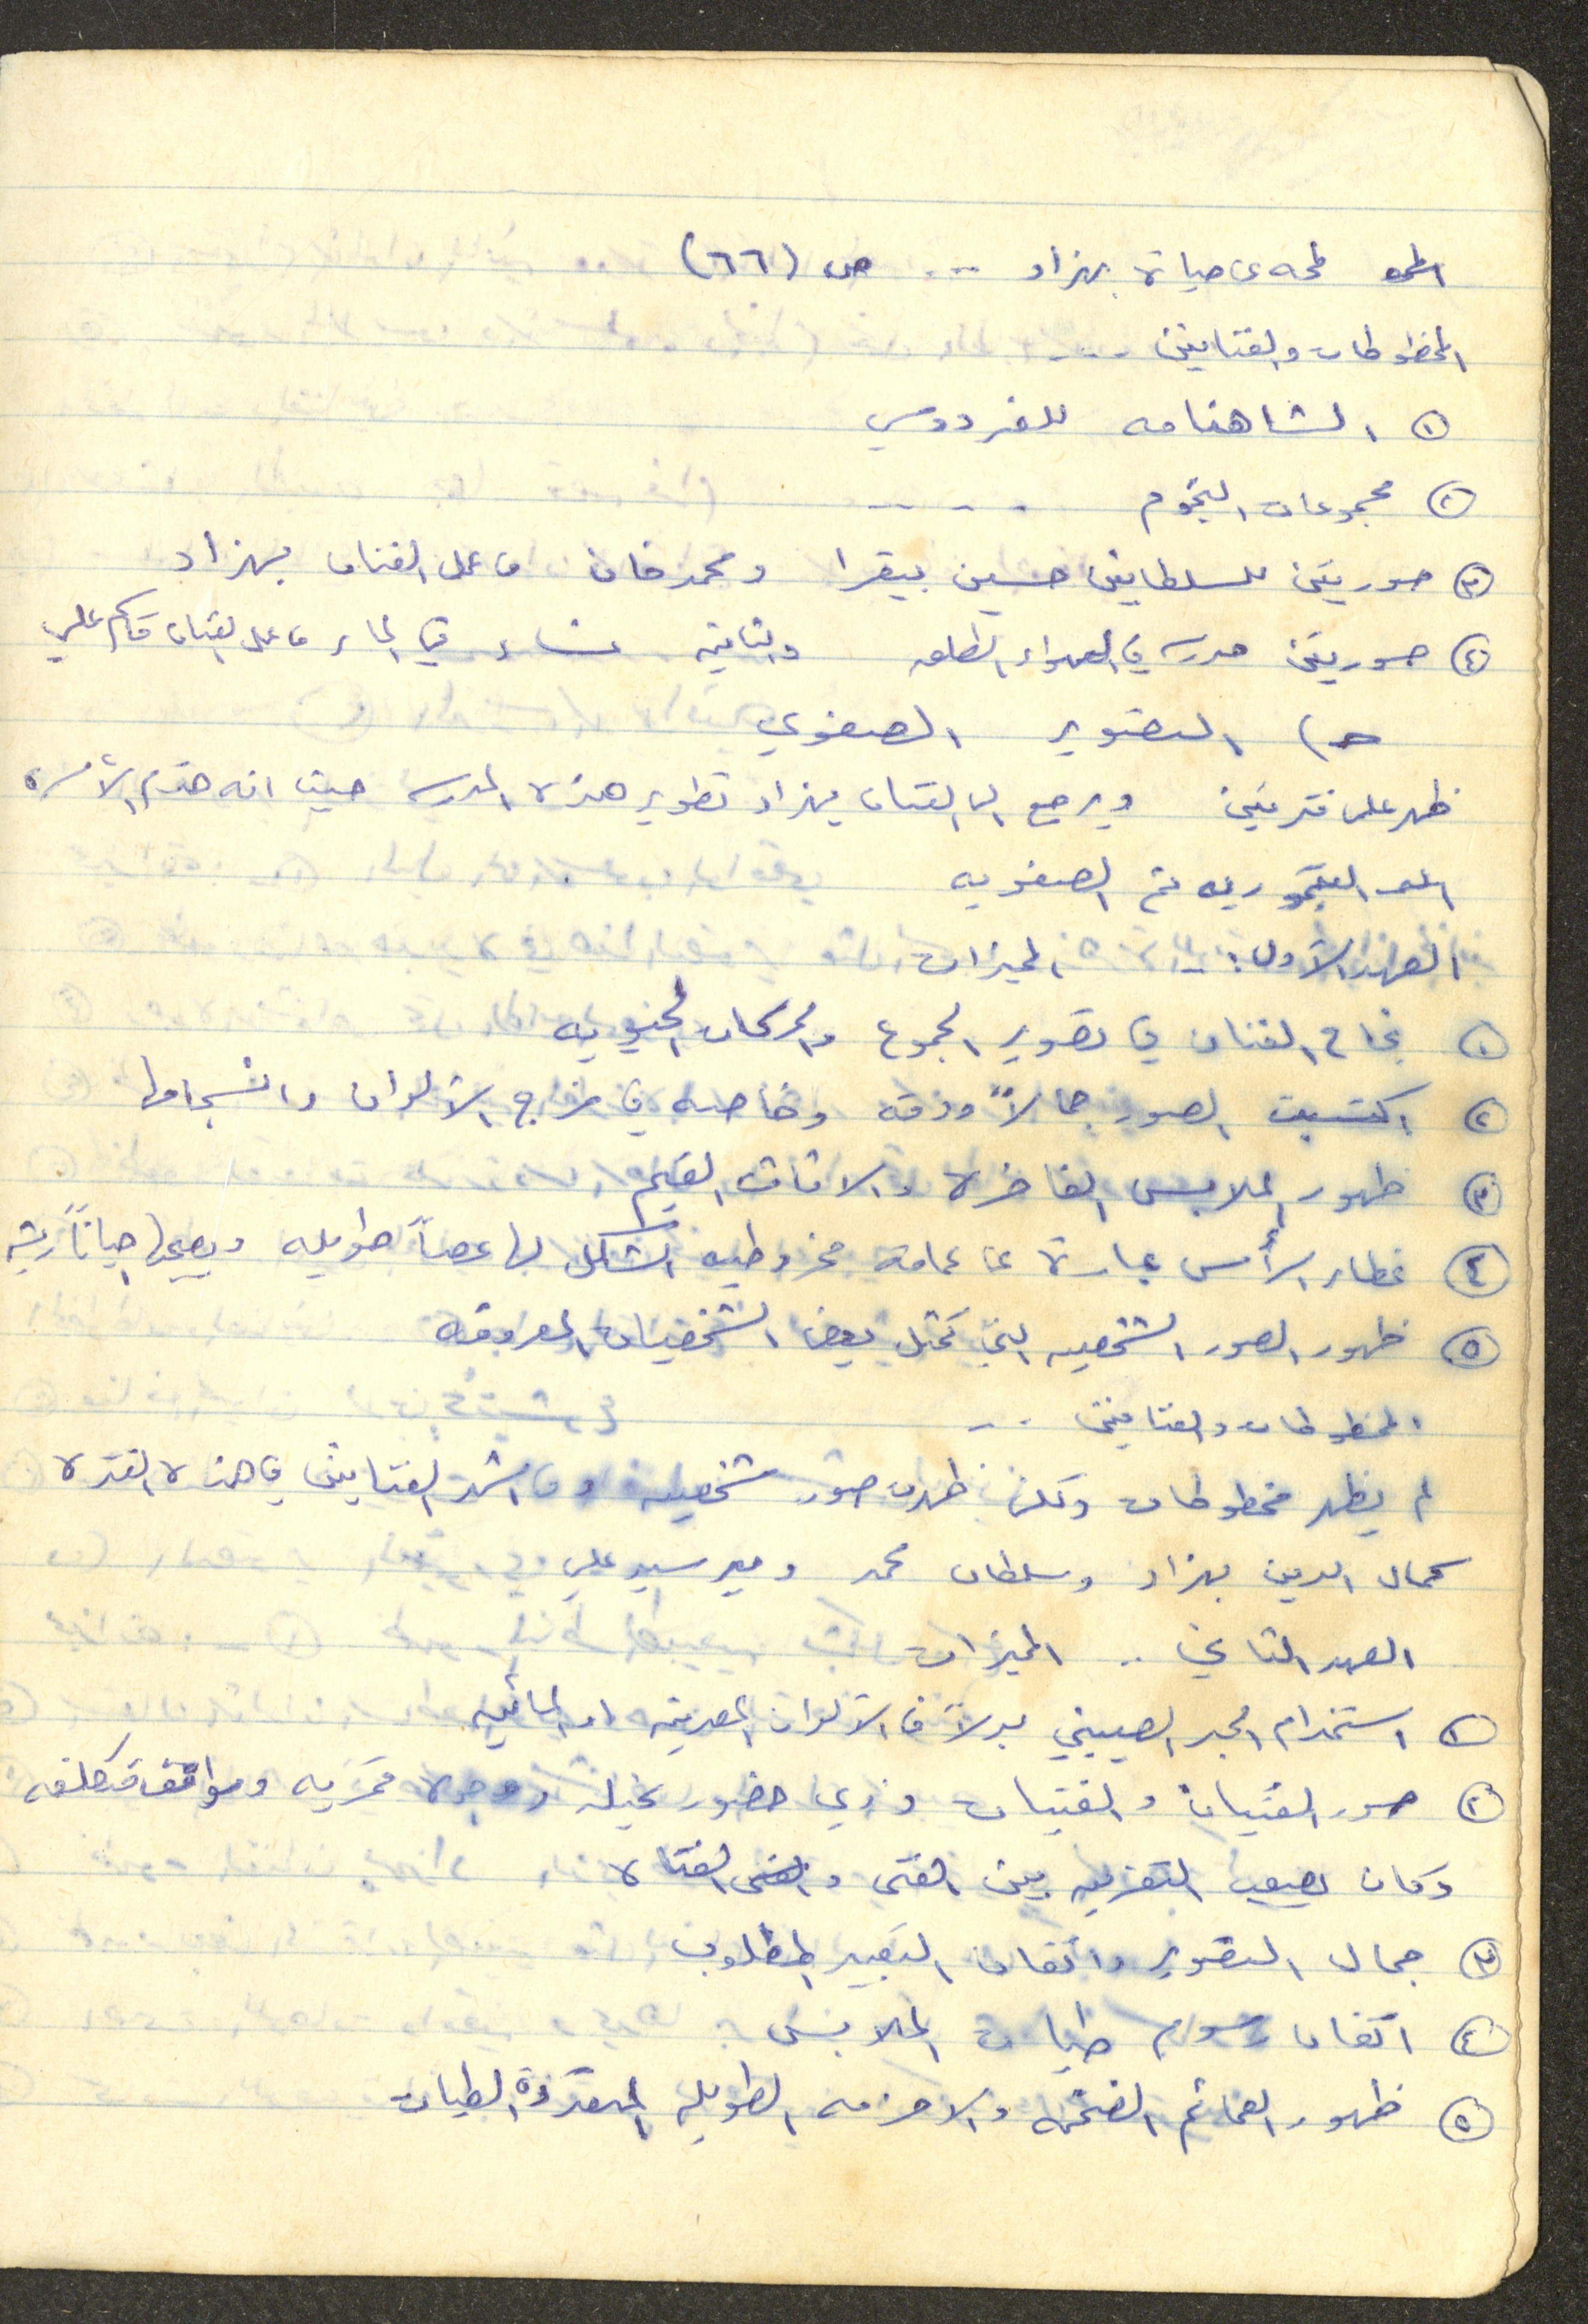 لمحه عن حياة بهزاد ... ص (٦٦)
المخطوطات والفنانين ....
١ الشاهنامه للفردوسي
٢ مجموعات النجوم ....
٣ صورتين للسلطانين حسين بيقرا ومحمد خان من عمل الفنان بهزاد
٤ صورتين مدرسه في الهواء الطلق والثانيه نساء في الماء من عمل الفنان قاسم علي
حـ) التصوير الصفوي
ظهر على فترتين ويرجع الى الفنان بهزاد تطوير هذه المدرسه حيث انه خدم الأسره
التيموريه ثم الصفويه
العهد الأول :- المميزات
١ نجاح الفنان في تصوير الجموع والحركات الحيويه
٢ اكتسبت الصور جمالاً ودقه وخاصه في مزج الألوان وانسجامها
٣ ظهور الملابس الفاخرة والاثاث القيم
٤ غطاء الرأس عبارة عن عمامة مخروطيه الشكل لها عصاً طويله ويصحبها احياناً ريشه
٥ ظهور الصور الشخصيه التي تمثل بعض الشخصيات المعروفه
المخطوطات والفنانين ..
لم يظهر مخطوطات ولكن ظهرت صور شخصيه ومن اشهر الفنانين في هذه الفترة
كمال الدين بهزاد وسلطان محمد ومير سيد علي
العهد الثاني .. المميزات
١ استخدام الحبر الصيني بدلاً من الألوان المعدنيه او المائيه
٢ صور الفتيان والفتيات وذوي خصور نحيله ووجوه قمريه ومواقف متكلفه
وكان يصعب التفريق بين الفتى والفتاة
٣ جمال التصوير واتقان التعبير المطلوب
٤ اتقان رسوم طيات الملابس
٥ ظهور العمائم الضخمه والاحزمه الطويله المتعددة الطيات